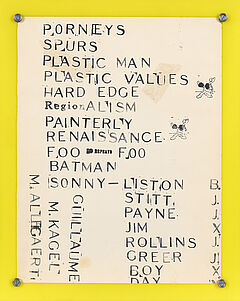 PORNEYS
SPURS
PLASTIC MAN
PLASTIC VALUES
HARD EDGE
RegionALISM
PAINTERLY
RENAISSANCE
FOO REPEATS FOO
BATMAN
SONNY-LISTON B.
STITT, J.
PAYNE J.
JIM X
ROLLINS J.
GREER J!
BOY X
DAY
GUILLAUME
M. KAGEL